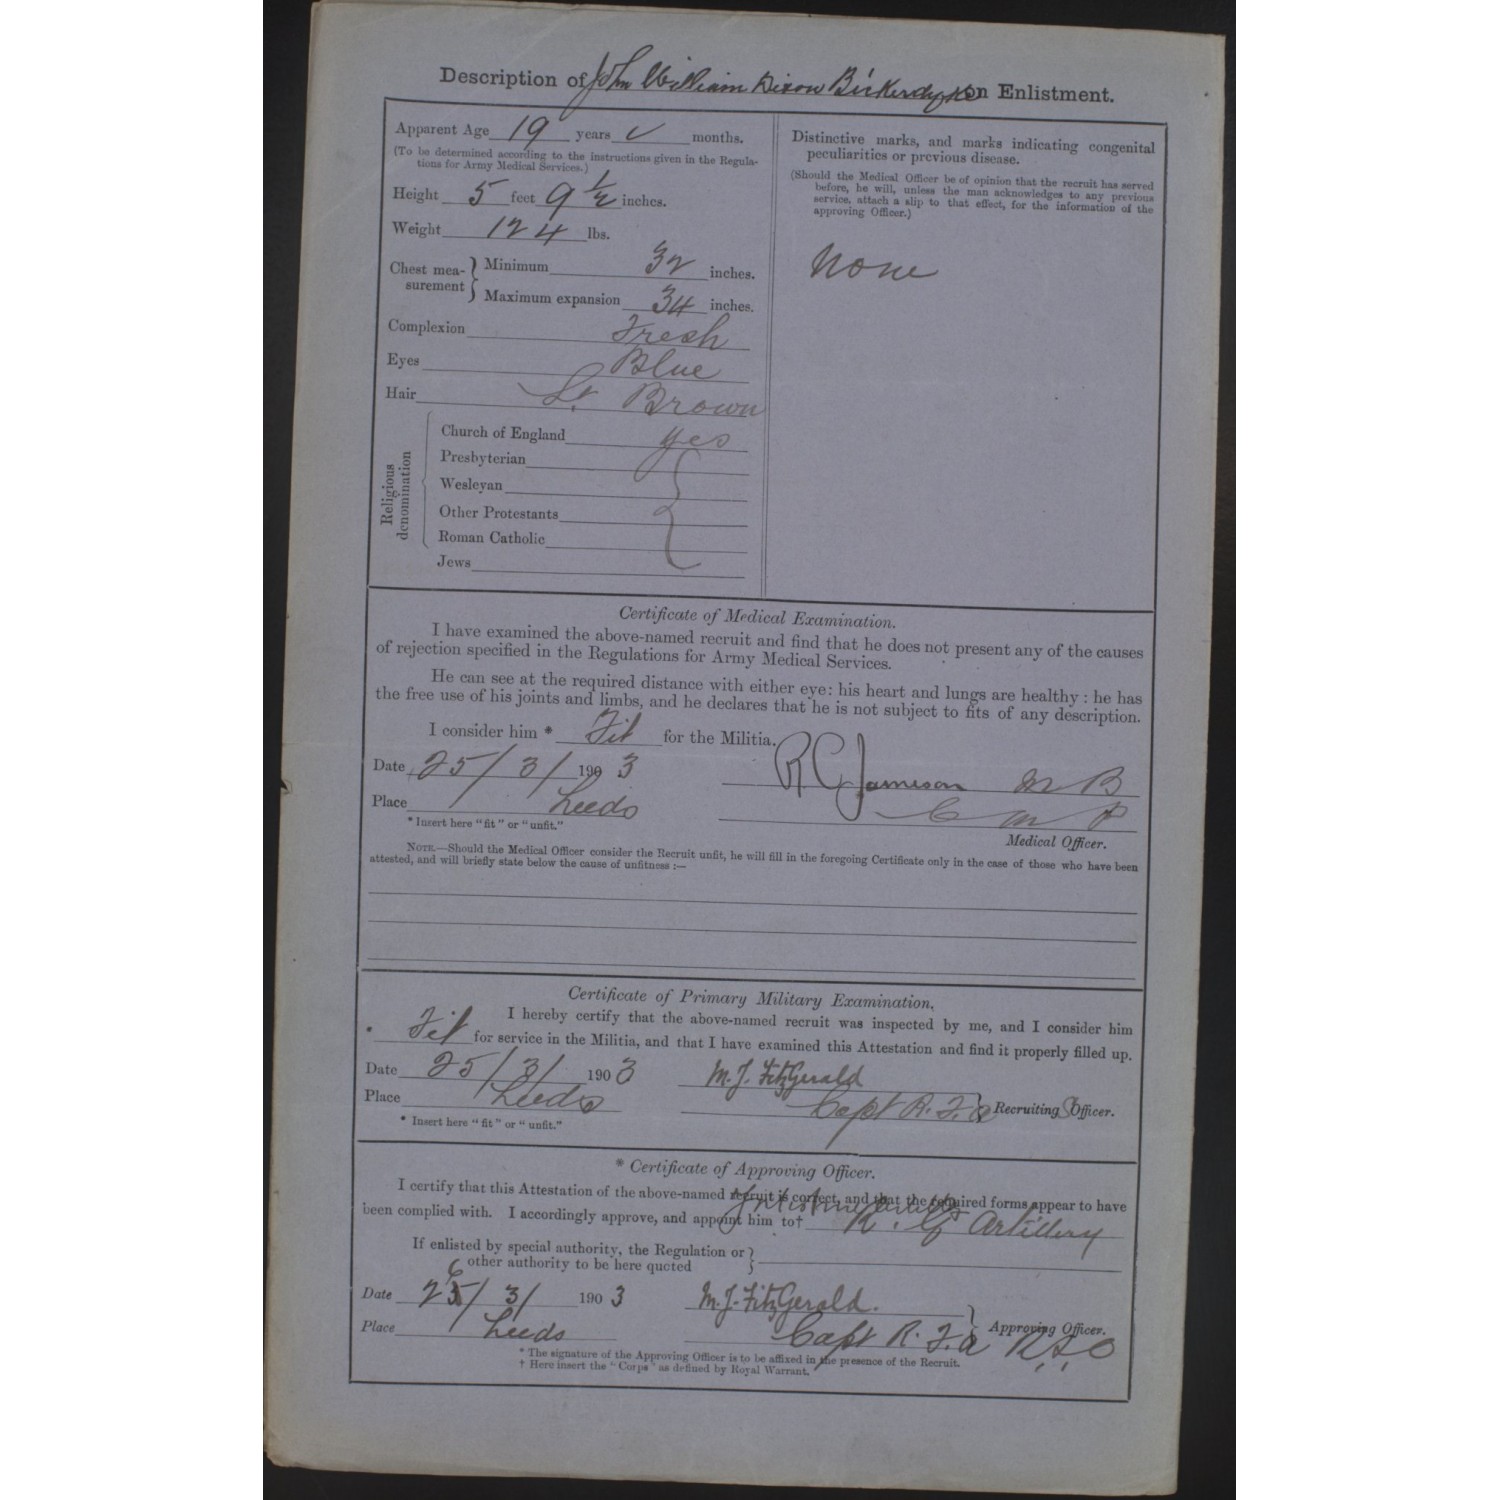 Description of John William Dixon Bickerdyke on Enlistment.
Apparent Age 19 years months.
(To be determined according to the instructions given in the Regula-
tions for Army Medical Services.)
Height 5 feet 9 1/2 inches.
Weight 124 lbs.
Chest mea-
surement
Minimum 32 inches.
Maximum expansion 34 inches.
Complexion Fresh
Eyes Blue
Hair Lt Brown
Religious
denomination
Church of England yes
Presbyterian
Wesleyan
Other Protestants
Roman Catholic
Jews
Distinctive marks, and marks indicating congenital
peculiarities or previous disease.
(Should the Medical Officer be of opinion that the recruit has served
before, he will, unless the man acknowledges to any previous
service, attach a slip to that effect, for the information of the
approving Officer.)
None
Certificate of Medical Examination.
I have examined the above-named recruit and find that he does not present any of the causes
of rejection specified in the Regulations for Army Medical Services.
He can see at the required distance with either eye: his heart and lungs are healthy: he has
the free use of his joints and limbs, and he declares that he is not subject to fits of any description.
I consider him * Fit for the Militia.
Date 25/3/1903 R C Jameson M B
Place Leeds C M
Medical Officer.
* Insert here "fit" or "unfit."
NOTE.—Should the Medical Officer consider the Recruit unfit, he will fill in the foregoing Certificate only in the case of those who have been
attested, and will briefly state below the cause of unfitness:—
Certificate of Primary Military Examination.
I hereby certify that the above-named recruit was inspected by me, and I consider him
* Fit for service in the Militia, and that I have examined this Attestation and find it properly filled up.
Date 25/3/1903 M. J. FitzGerald
Place Leeds Capt R. F. A Recruiting Officer.
* Insert here "fit" or "unfit."
* Certificate of Approving Officer.
I certify that this Attestation of the above-named recruit is correct, and that the required forms appear to have
been complied with. I accordingly approve, and appoint him to† R. G Artillery
If enlisted by special authority, the Regulation or
other authority to be here quoted
Date 26/3/1903 M. J. FitzGerald.
Place Leeds Capt R. F. A Approving Officer.
* The signature of the Approving Officer is to be affixed in the presence of the Recruit.
† Here insert the "Corps" as defined by Royal Warrant.